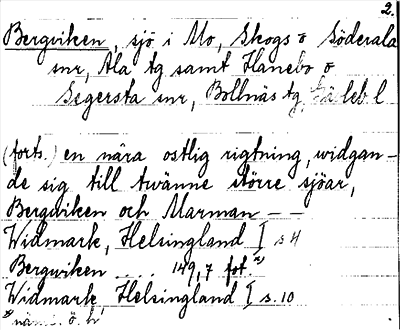 2.
Bergviken, sjö i Mo, Skogs o Söderala
snr, Ala tg samt Hanebo o
Segersta snr, Bollnäs tg, Gävleb l
(forts.) en nära ostlig rigtning, widgan-
de sig till twänne större sjöar,
Bergwiken och Marman - -
Widmark, Helsingland I s 4
Bergwiken .... 149,7 fot.x)
Widmark, Helsingland I s. 10
x) näml. ö. h.